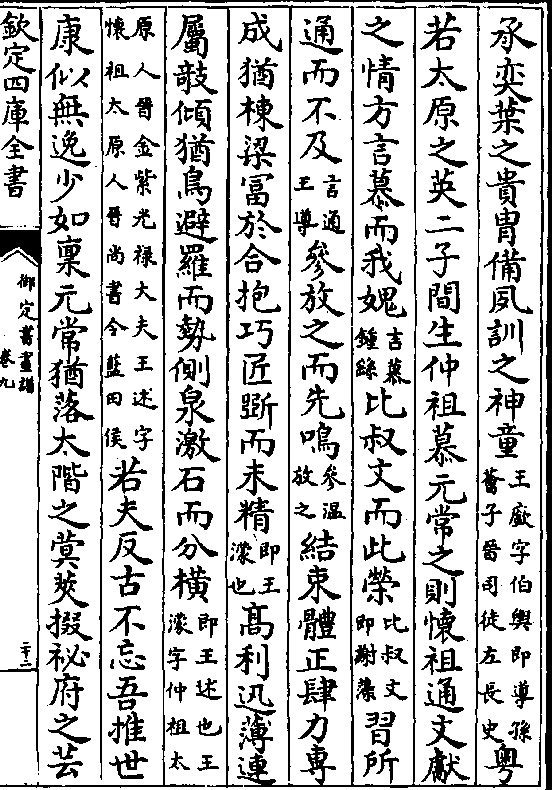 承奕葉之貴胄備夙訓之神童王廞字伯輿即導孫薈子晉司徒左長史粵
若太原之英二子間生仲祖慕元常之則懷祖通文獻
之情方言慕而我媿言慕鍾繇比叔文而此榮比叔文即謝藻習所
通而不及言通王導參放之而先鳴參温放之結束體正肆力專
成猶棟梁冨於合抱巧匠斲而未精即王濛也髙利迅薄連
屬敧傾猶鳥避羅而勢側泉激石而分橫即王述也王濛字仲祖太
原人晉金紫光禄大夫王述字懷祖太原人晉尚書令藍田侯若夫反古不忘吾推世
康似無逸少如稟元常猶落太階之蓂莢掇祕府之芸
欽定四庫全書
御定書畫譜
卷九
二十二